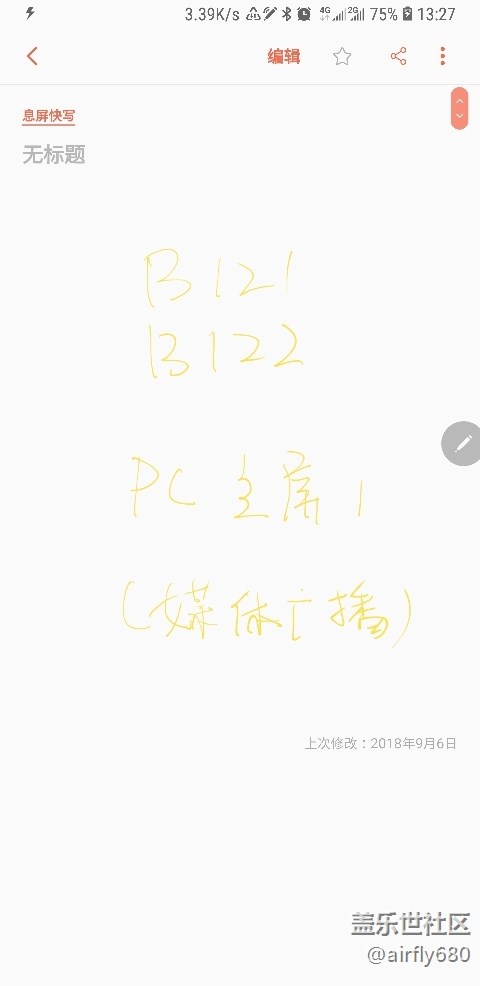 3.39K/s 4G 2G 75% 13:27
编辑
息屏快写
无标题
B121
B122
PC 主屏1
(媒体广播)
上次修改：2018年9月6日
盖乐世社区
@airfly680